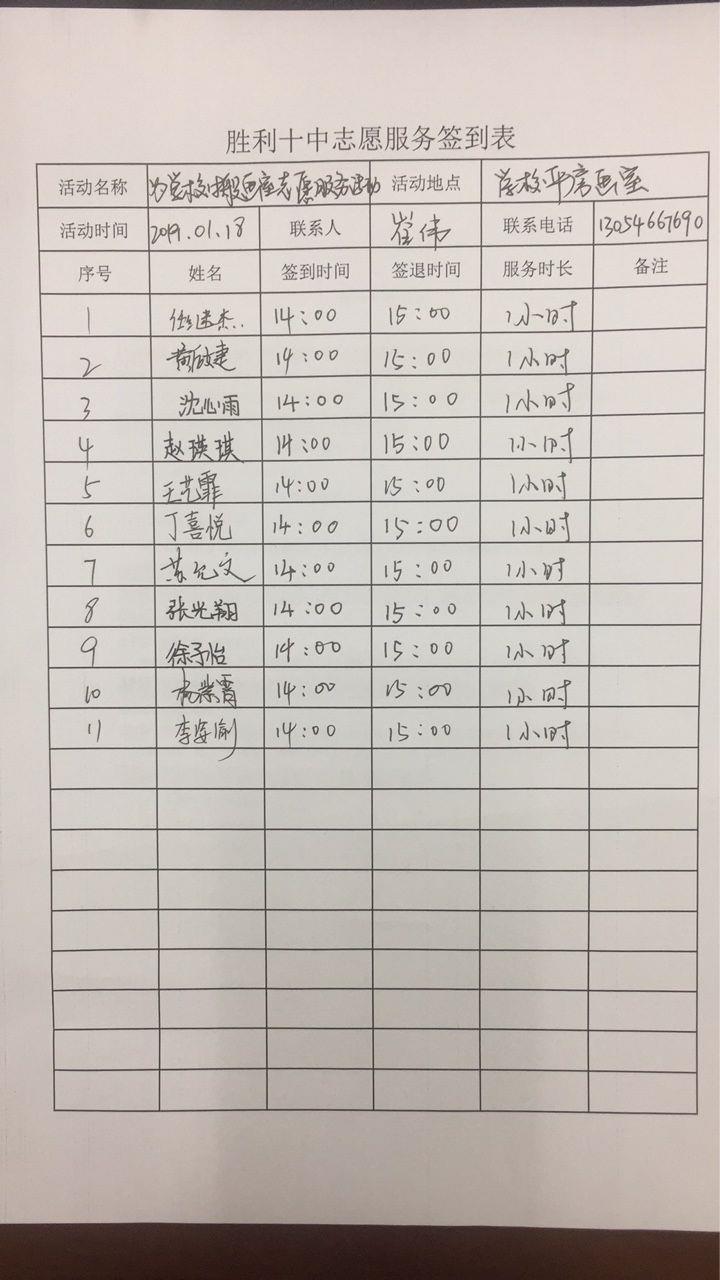 胜利十中志愿服务签到表
活动名称 为学校搬画室志愿服务活动 活动地点 学校平房画室
活动时间 2019.01.18 联系人 崔伟 联系电话 13054667690
序号 姓名 签到时间 签退时间 服务时长 备注
1 14:00 15:00 1小时
2 14:00 15:00 1小时
3 沈心雨 14:00 15:00 1小时
4 赵琪琪 14:00 15:00 1小时
5 王艺霏 14:00 15:00 1小时
6 丁喜悦 14:00 15:00 1小时
7 苏允文 14:00 15:00 1小时
8 张光翔 14:00 15:00 1小时
9 徐子怡 14:00 15:00 1小时
10 14:00 15:00 1小时
11 李姿俞 14:00 15:00 1小时